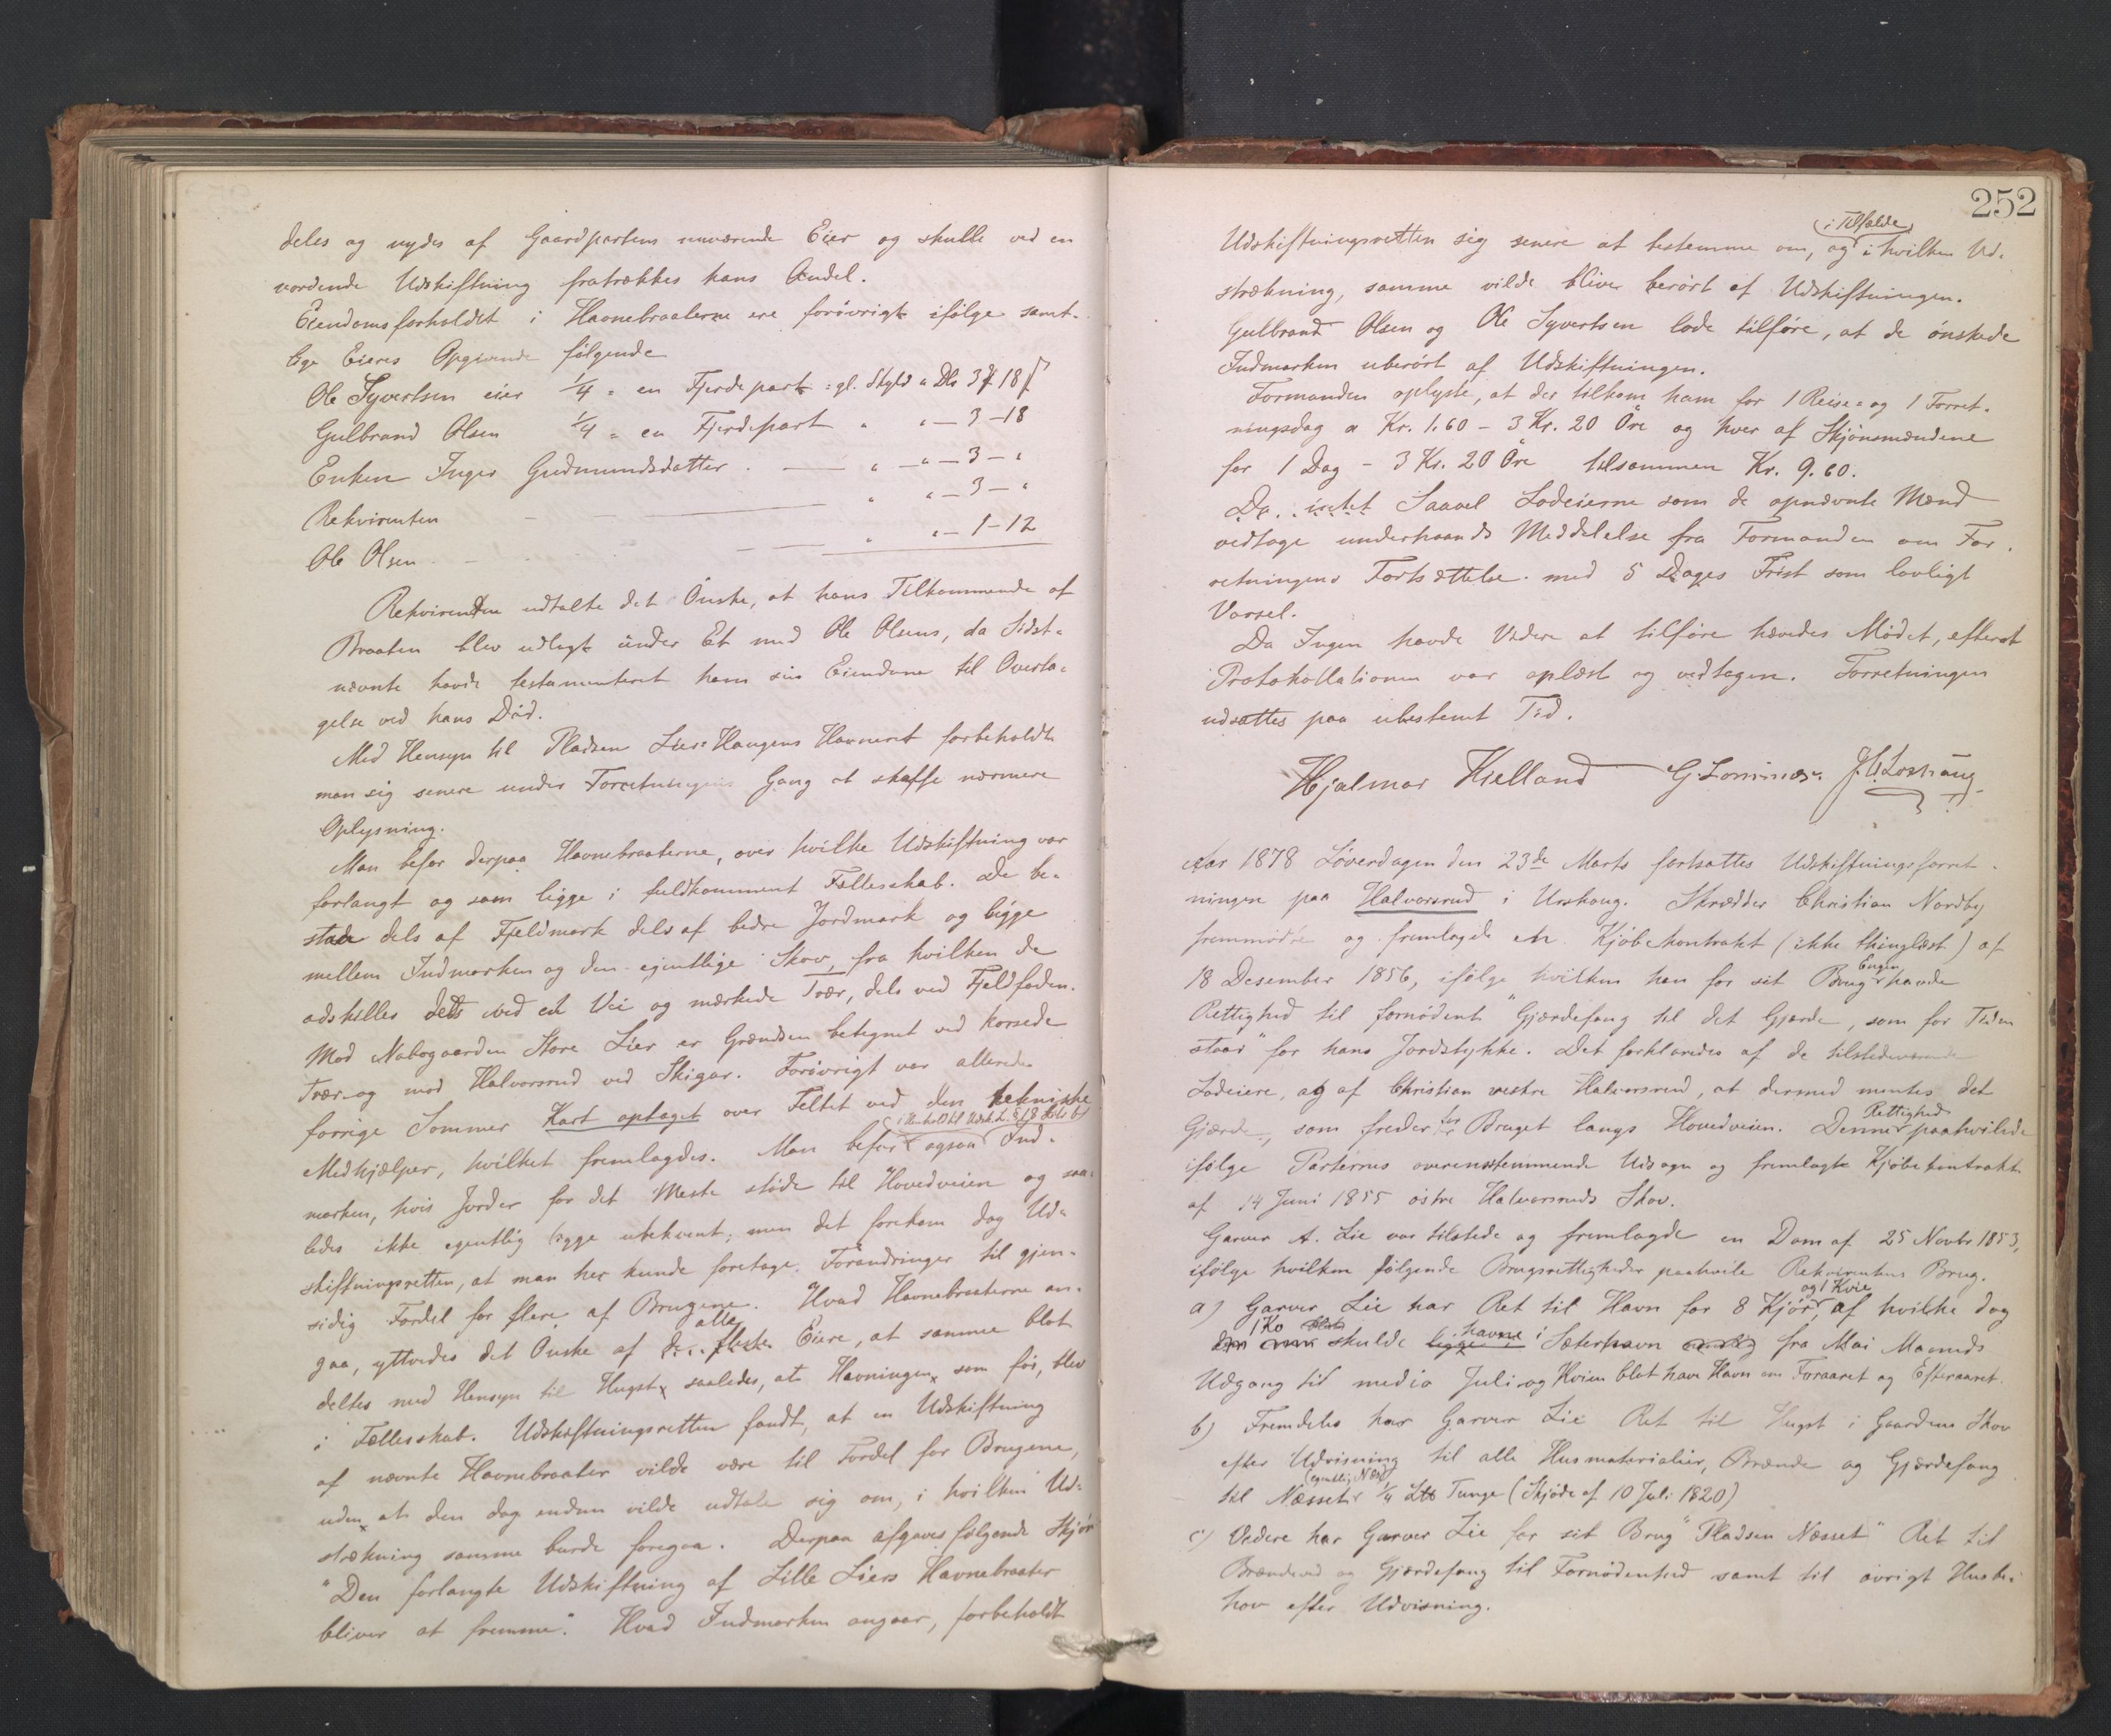 deles og nydes af Gaardpartens nuværende Eier og skulle ved en
vordende Udskiftning fratrækkes hans Andel.
Eiendomsforholdet i Havnebraaterne ere forøvrigt ifølge samt-
lige Eieres Opgivende følgende
Ole Syvertsen eier 1/4 = en Fjerdepart : gl. Skyld a Dlr 3 18
Gulbrand Olsen 1/4 = en Fjerdepart " " — 3 — 18
Enken Inger Gudmundsdatter . — " — " — 3 — "
Rekvirenten — " " — 3 — "
Ole Olsen — — " " — 1 — 12
Rekvirenten udtalte det Ønske, at hans Tilkommende af
Braaten blev udlagt under Et med Ole Olsens, da Sidst-
nævnte havde testamenteret ham sin Eiendom til Overta-
gelse ved hans Død.
Med Hensyn til Pladsen Lier-Haugens Havneret forbeholdt
man sig senere under Forretningens Gang at skaffe nærmere
Oplysning.
Man befor derpaa Havnebraaterne, over hvilke Udskiftning var
forlangt og som ligge i fuldkomment Fællesskab. De be-
staae dels af Fjeldmark dels af bedre Jordmark og ligge
mellem Indmarken og den egentlige Skov, fra hvilken de
adskilles dels ved en Vei og mærkede Trær, dels ved Fjeldfoden.
Mod Nabogaarden Store Lier er Grændsen betegnet ved korsede
Trær og mod Halvorsrud ved Skigar. Forøvrigt var allerede
forrige Sommer Kart optaget over Feltet ved den tekniske
i Henhold til Udsk. L. § 18 Litr b)
Medhjælper, hvilket fremlagdes. Man befor ogsaa Ind-
marken, hvis Jorder for det Meste støde til Hovedveien og saa-
ledes ikke egentlig ligge ubekvemt; men det forekom dog Ud-
skiftningsretten, at man her kunde foretage Forandringer til gjen-
sidig Fordel for flere af Brugene. Hvad Havnebraaterne an-
alle
gaa, yttredes det Ønske af de fleste Eiere, at samme blot
deltes med Hensyn til Hugst, saaledes, at Havningen, som før, blev
i Fællesskab. Udskiftningsretten fandt, at en Udskiftning
af nævnte Havnebraater vilde være til Fordel for Brugene,
uden at den dog endnu vilde udtale sig om, i hvilken Ud-
strækning samme burde foregaa. Derpaa afgaves følgende Skjøn
"Den forlangte Udskiftning af Lille Liers Havnebraater
bliver at fremme". Hvad Indmarken angaar, forbeholdt
252
i Tilfælde
Udskiftningsretten sig senere at bestemme om, og i hvilken Ud-
strækning, samme vilde bliver berørt af Udskiftningen.
Gulbrand Olsen og Ole Syvertsen lode tilføre, at de ønskede
Indmarken uberørt af Udskiftningen.
Formanden oplyste, at der tilkom ham for 1 Reise- og 1 Forret-
ningsdag a Kr. 1.60 – 3 Kr. 20 Øre og hver af Skjønsmændene
for 1 Dag – 3 Kr. 20 Øre tilsammen Kr. 9.60.
Da intet Saavel Lodeierne som de opnævnte Mænd
vedtoge underhaands Meddelelse fra Formanden om For-
retningens Fortsættelse med 5 Dages Frist som lovligt
Varsel.
Da Ingen havde Videre at tilføre hævedes Mødet, efterat
Protokollationen var oplæst og vedtagen. Forretningen
udsattes paa ubestemt Tid.
Hjalmar Kielland G. Lommes.
Aar 1878 Løverdagen den 23de Marts fortsattes Udskiftningsforret-
ningen paa Halvorsrud i Urskoug. Skrædder Christian Nordby
fremmødte og fremlagde en Kjøbekontrakt (ikke thinglæst) af
Engen
18 Desember 1856, ifølge hvilken han for sit Brug havde
Rettighed til fornødent "Gjærdefang til det Gjærde, som for Tiden
staar" for hans Jordstykke. Det forklaredes af de tilstedeværende
Lodeiere, og af Christian vestre Halvorsrud, at dermed mentes det
Rettighed
Gjærde, som freder for Bruget langs Hovedveien. Denne paahvilede
ifølge Parternes overensstemmende Udsagn og fremlagte Kjøbekontrakt
af 14 Juni 1855 østre Halvorsruds Skov.
Garver A. Lie var tilstede og fremlagde en Dom af 25 Novbr 1853,
ifølge hvilken følgende Brugsrettigheder paahvile Rekvirentens Brug.
og 1 Kvie
a) Garver Lie har Ret til Havn for 8 Kjør, af hvilke dog
1 Ko havne
skulde ligge i Sæterhavn fra Mai Maaneds
Udgang til medio Juli og Kvien blot have Havn om Foraaret og Efteraaret.
b) Fremdeles har Garver Lie Ret til Hugst i Gaardens Skov
efter Udvisning til alle Husmaterialier, Brænde og Gjærdefang
(egentlig Næs)
til Næsset 1/4 Tunge (Skjøde af 10 Juli 1820)
c) Videre har Garver Lie for sit Brug "Pladsen Næsset" Ret til
Brændeved og Gjærdefang til Fornødenhed samt til øvrigt Husbe-
hov efter Udvisning.